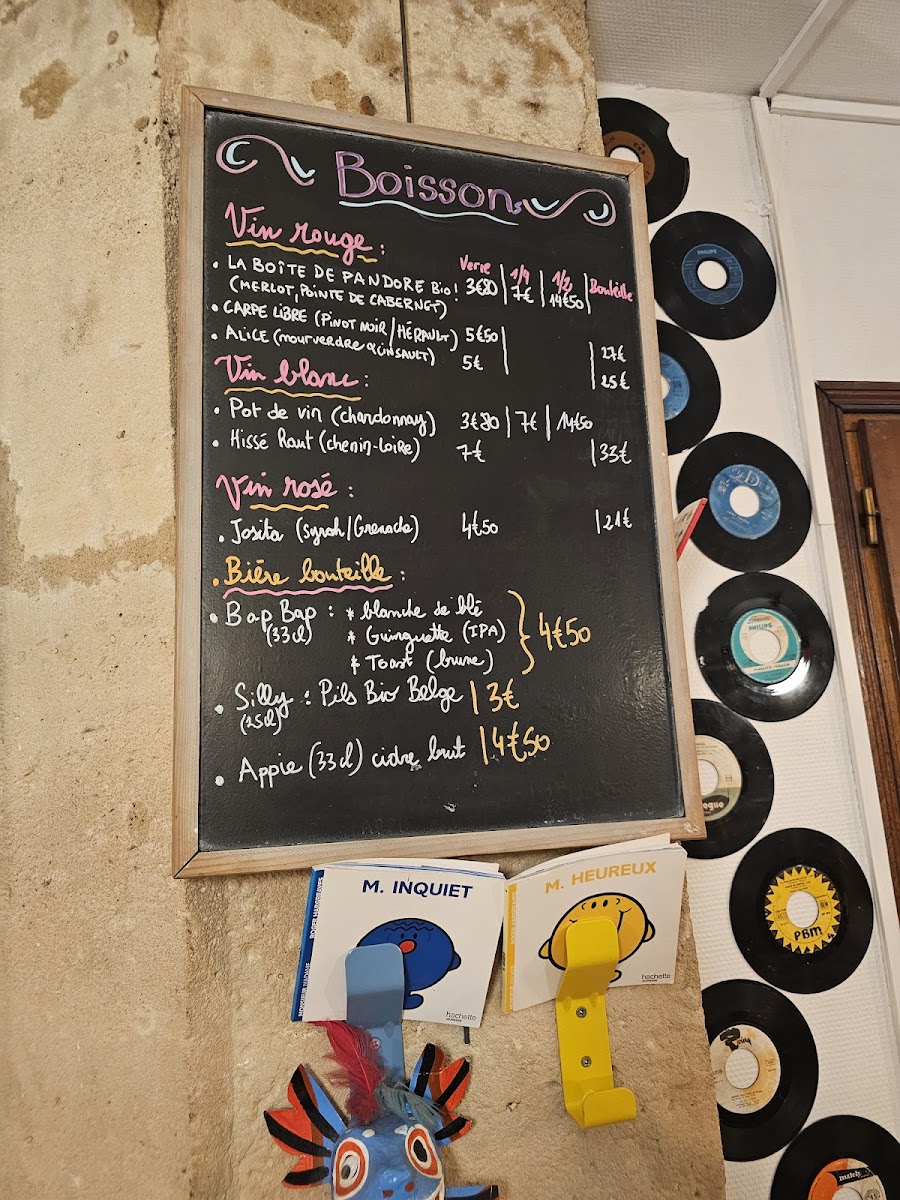 Boissons
Vin rouge :
Verre | 1/4 | 1/2 | Bouteille
• LA BOÎTE DE PANDORE Bio ! 3€80 | 7€ | 14€50
(MERLOT, POINTE DE CABERNET)
• CARPE LIBRE (PINOT NOIR / HÉRAULT) 5€50 | | 27€
• ALICE (mourverdre & CINSAULT) 5€ | 25€
Vin blanc :
• Pot de vin (chardonnay) 3€80 | 7€ | 14€50
• Hissé Haut (chenin-Loire) 7€ | 33€
Vin rosé :
• Josita (Syrah/Grenade) 4€50 | 21€
• Bière bouteille :
• Bap Bap : * blanche de blé
(33cl) * Guinguette (IPA) 4€50
* Toast (brune)
• Silly : Pils Bio Belge | 3€
(25cl)
• Appie (33cl) cidre brut | 4€50
M. INQUIET
ROGER HARGREAVES
MONSIEUR MADAME
hachette
JEUNESSE
M. HEUREUX
hachette
JEUNESSE
PHILIPS
PHILIPS
PBM